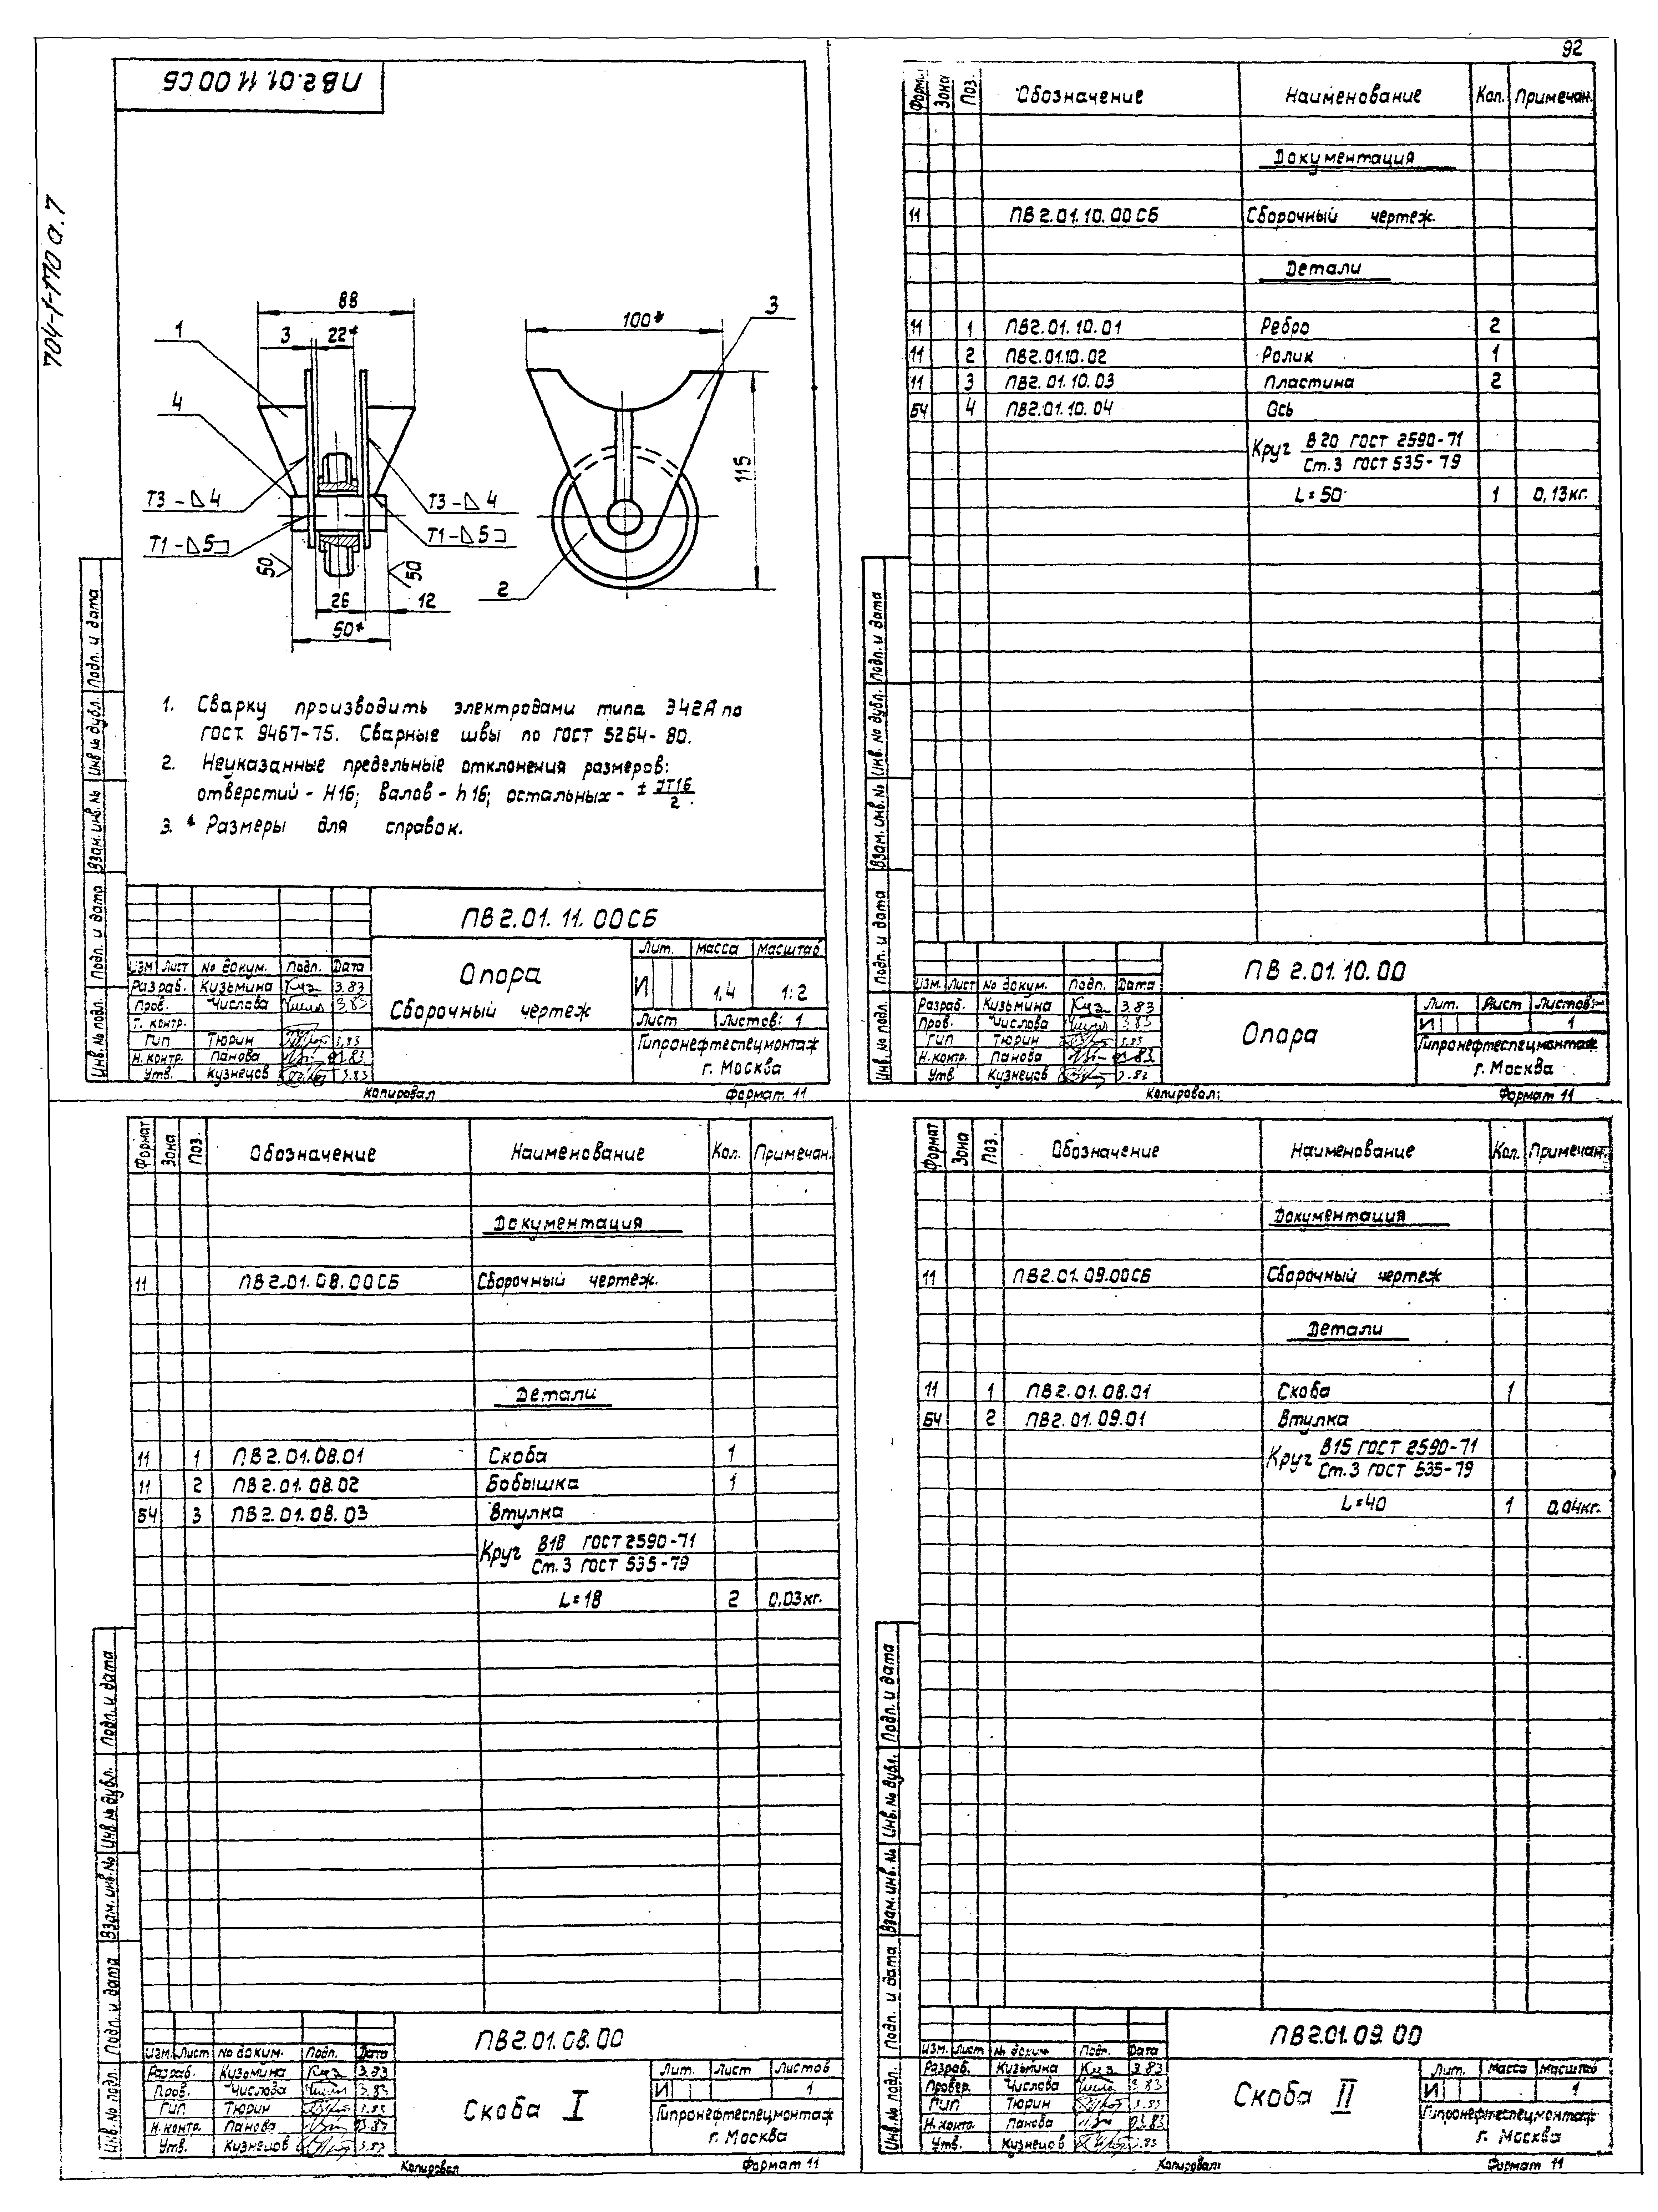 92
704-1-170 а.7
ПВ2.01.11.00СБ
88
3 22*
1
4
Т3-△4
Т1-△5
Т3-△4
Т1-△5
50
50
26 12
50*
100*
3
115
2
1. Сварку производить электродами типа Э42А по
ГОСТ 9467-75. Сварные швы по ГОСТ 5264-80.
2. Неуказанные предельные отклонения размеров:
отверстий - Н16; валов - h16; остальных - ± JT16/2.
3. * Размеры для справок.
Инв. № подл. Подп. и дата Взам. инв. № Инв № дубл. Подп. и дата
ПВ2.01.11.00СБ
Изм Лист № докум. Подп. Дата
Разраб. Кузьмина 3.83
Пров. Числова 3.83
Т. контр.
ГИП Тюрин 3.83
Н.контр. Панова 03.83
Утв. Кузнецов 3.83
Опора
Сборочный чертеж
Лит. Масса Масштаб
И 1,4 1:2
Лист Листов: 1
Гипронефтеспецмонтаж
г. Москва
Копировал Формат 11
Форм. Зона Поз. Обозначение Наименование Кол. Примечан.
Документация
11 ПВ2.01.10.00СБ Сборочный чертеж.
Детали
11 1 ПВ2.01.10.01 Ребро 2
11 2 ПВ2.01.10.02 Ролик 1
11 3 ПВ2.01.10.03 Пластина 2
БЧ 4 ПВ2.01.10.04 Ось
Круг В20 ГОСТ 2590-71
Ст.3 ГОСТ 535-79
L=50 1 0,13кг.
Инв. № подл. Подп. и дата Взам. инв. № Инв. № дубл. Подп. и дата
ПВ 2.01.10.00
Изм. Лист № докум. Подп. Дата
Разраб. Кузьмина 3.83
Пров. Числова 3.83
ГИП Тюрин 3.83
Н.контр. Панова 03.83
Утв. Кузнецов 3.83
Опора
Лит. Лист Листов:
И 1
Гипронефтеспецмонтаж
г. Москва
Копировал: Формат 11
Формат Зона Поз. Обозначение Наименование Кол. Примечан.
Документация
11 ПВ2.01.08.00СБ Сборочный чертеж.
Детали
11 1 ПВ2.01.08.01 Скоба 1
11 2 ПВ2.01.08.02 Бобышка 1
БЧ 3 ПВ2.01.08.03 Втулка
Круг В18 ГОСТ 2590-71
Ст.3 ГОСТ 535-79
L=18 2 0,03кг.
Инв. № подл. Подп. и дата Взам. инв. № Инв № дубл. Подп. и дата
ПВ2.01.08.00
Изм. Лист № доким. Подп. Дата
Разраб. Кузьмина 3.83
Пров. Числова 3.83
ГИП Тюрин 3.83
Н.контр. Панова 03.83
Утв. Кузнецов 3.83
Скоба I
Лит. Лист Листов
И 1
Гипронефтеспецмонтаж
г. Москва
Копировал Формат 11
Формат Зона Поз. Обозначение Наименование Кол. Примечан.
Документация
11 ПВ2.01.09.00СБ Сборочный чертеж
Детали
11 1 ПВ2.01.08.01 Скоба 1
БЧ 2 ПВ2.01.09.01 Втулка
Круг В15 ГОСТ 2590-71
Ст.3 ГОСТ 535-79
L=40 1 0,04кг.
Инв. № подл. Подп. и дата Взам. инв. № Инв. № дубл. Подп. и дата
ПВ2.01.09.00
Изм. Лист № доким Подп. Дата
Разраб. Кузьмина 3.83
Провер. Числова 3.83
ГИП Тюрин 3.83
Н.контр. Панова 03.83
Утв. Кузнецов 3.83
Скоба II
Лит. Масса Масштаб
И 1
Гипронефтеспецмонтаж
г. Москва
Копировал: Формат 11